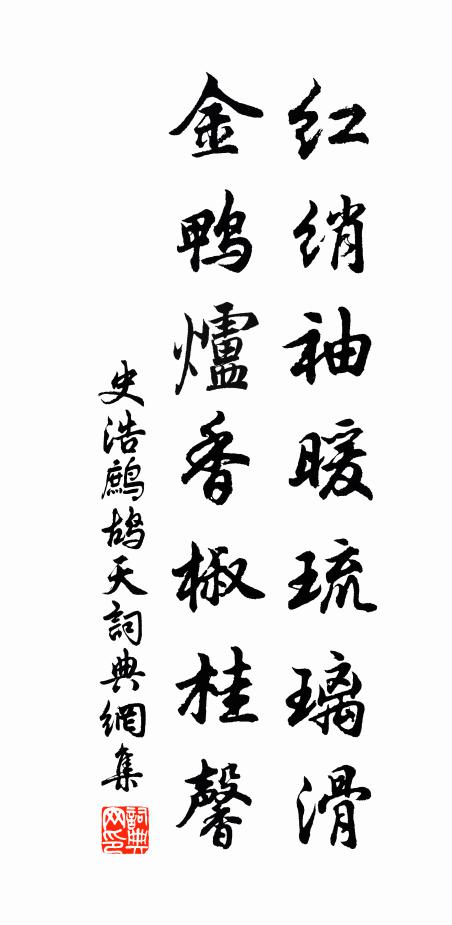 红绡袖暖琉璃滑
金鸭爐香椒桂馨
史浩鹧鸪天詞典網集
詞典网印